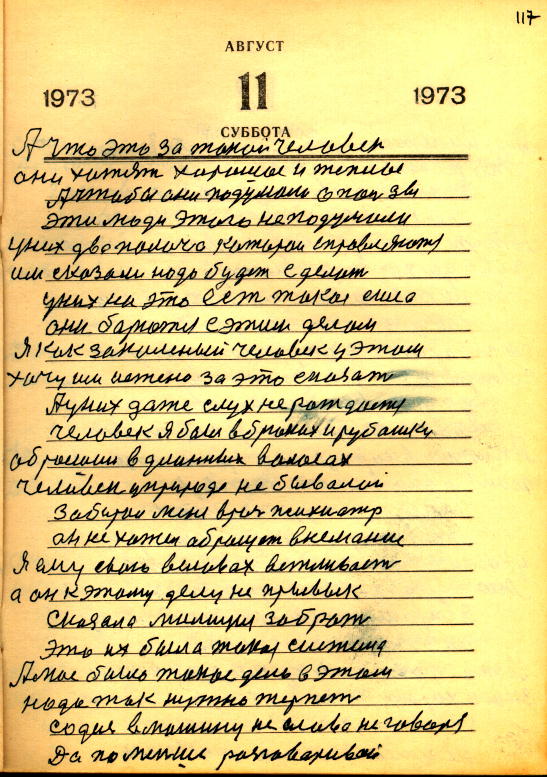 117
АВГУСТ
1973 11 1973
СУББОТА
А что это за такой человек
они хотят хорошое и теплое
А чтобы они подумали
эти люди этого неподумали
уних два палача которои справляют
им сказали надо будет сделат
уних на это ест такая сила
они с этим делом
Я как законеный человек у этом
хочу им истено за это сказат
Ауних даже слух не
человек я был в и рубашку
оброшии в длинных волосах
человек уприроде не бывалой
Забирал меня врач психиатр
он не хотел обращат внемание
Я ему свого
а он кэтому делу не превык
сказала милицыя забрат
это их была такая система
А мое было такое дело в этом
надо так нужно терпет
содия вмашину не слова не говоря
Да поменше разговаривай